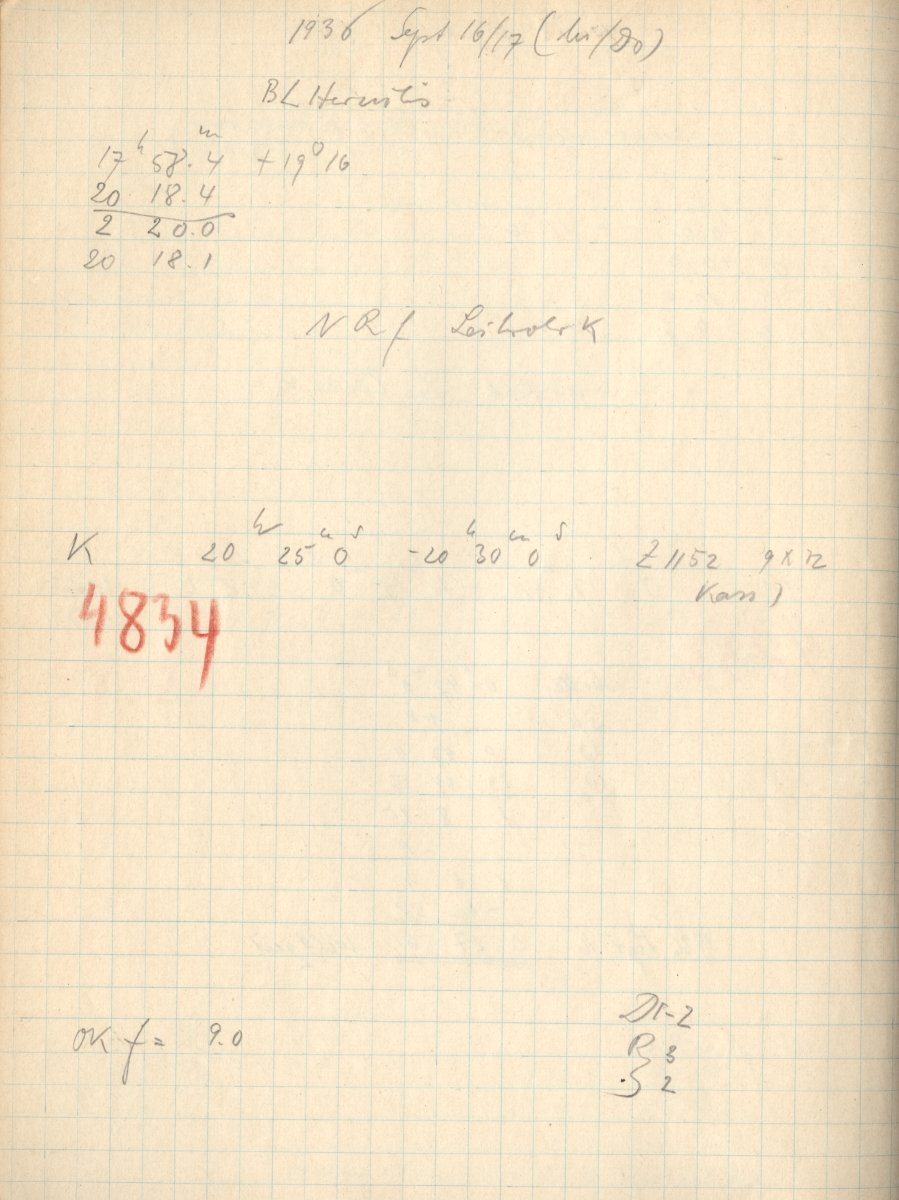 1936 Sept 16/17 (Mi/Do)
BL Herculis
17 h 58.4 m + 19° 16
20 18.4
2 20.0
20 18.1
NRf Leitrohr K
K 20 h 25 m 0 s - 20 h 30 m 0 s Z 1152 9 x 12
Kass)
4834
OK f = 9.0
2
3
2